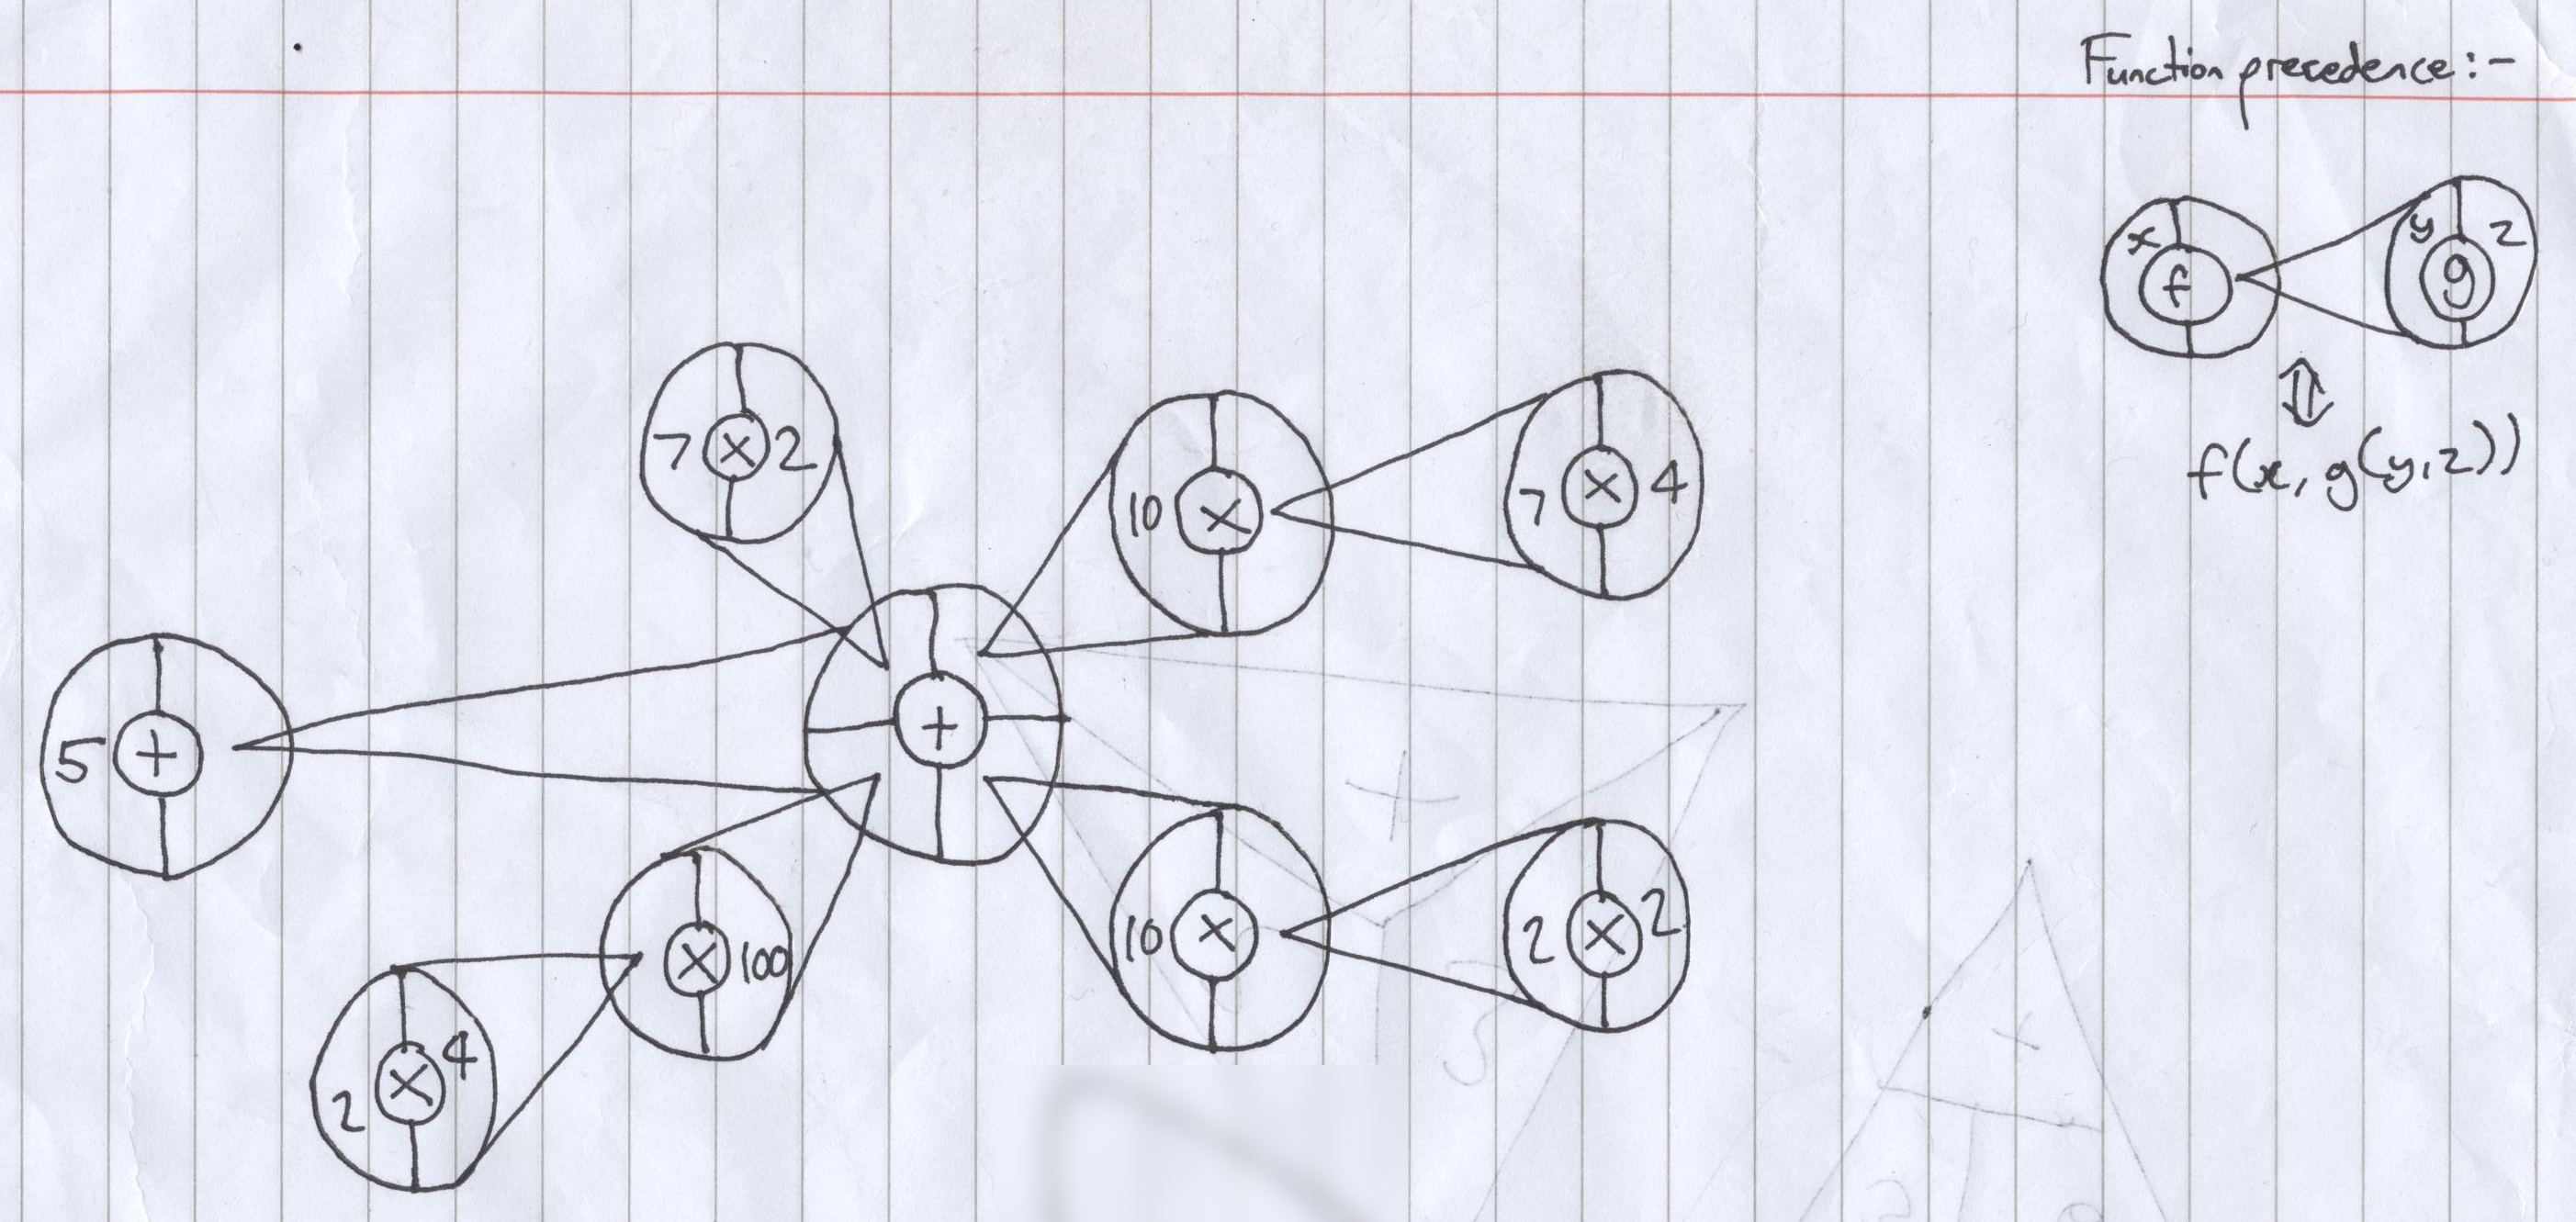 Function precedence:-
x f y g z
f(x, g(y,z))
7 × 2
10 × 7 × 4
5 + +
× 100
10 × 2 × 2
2 × 4